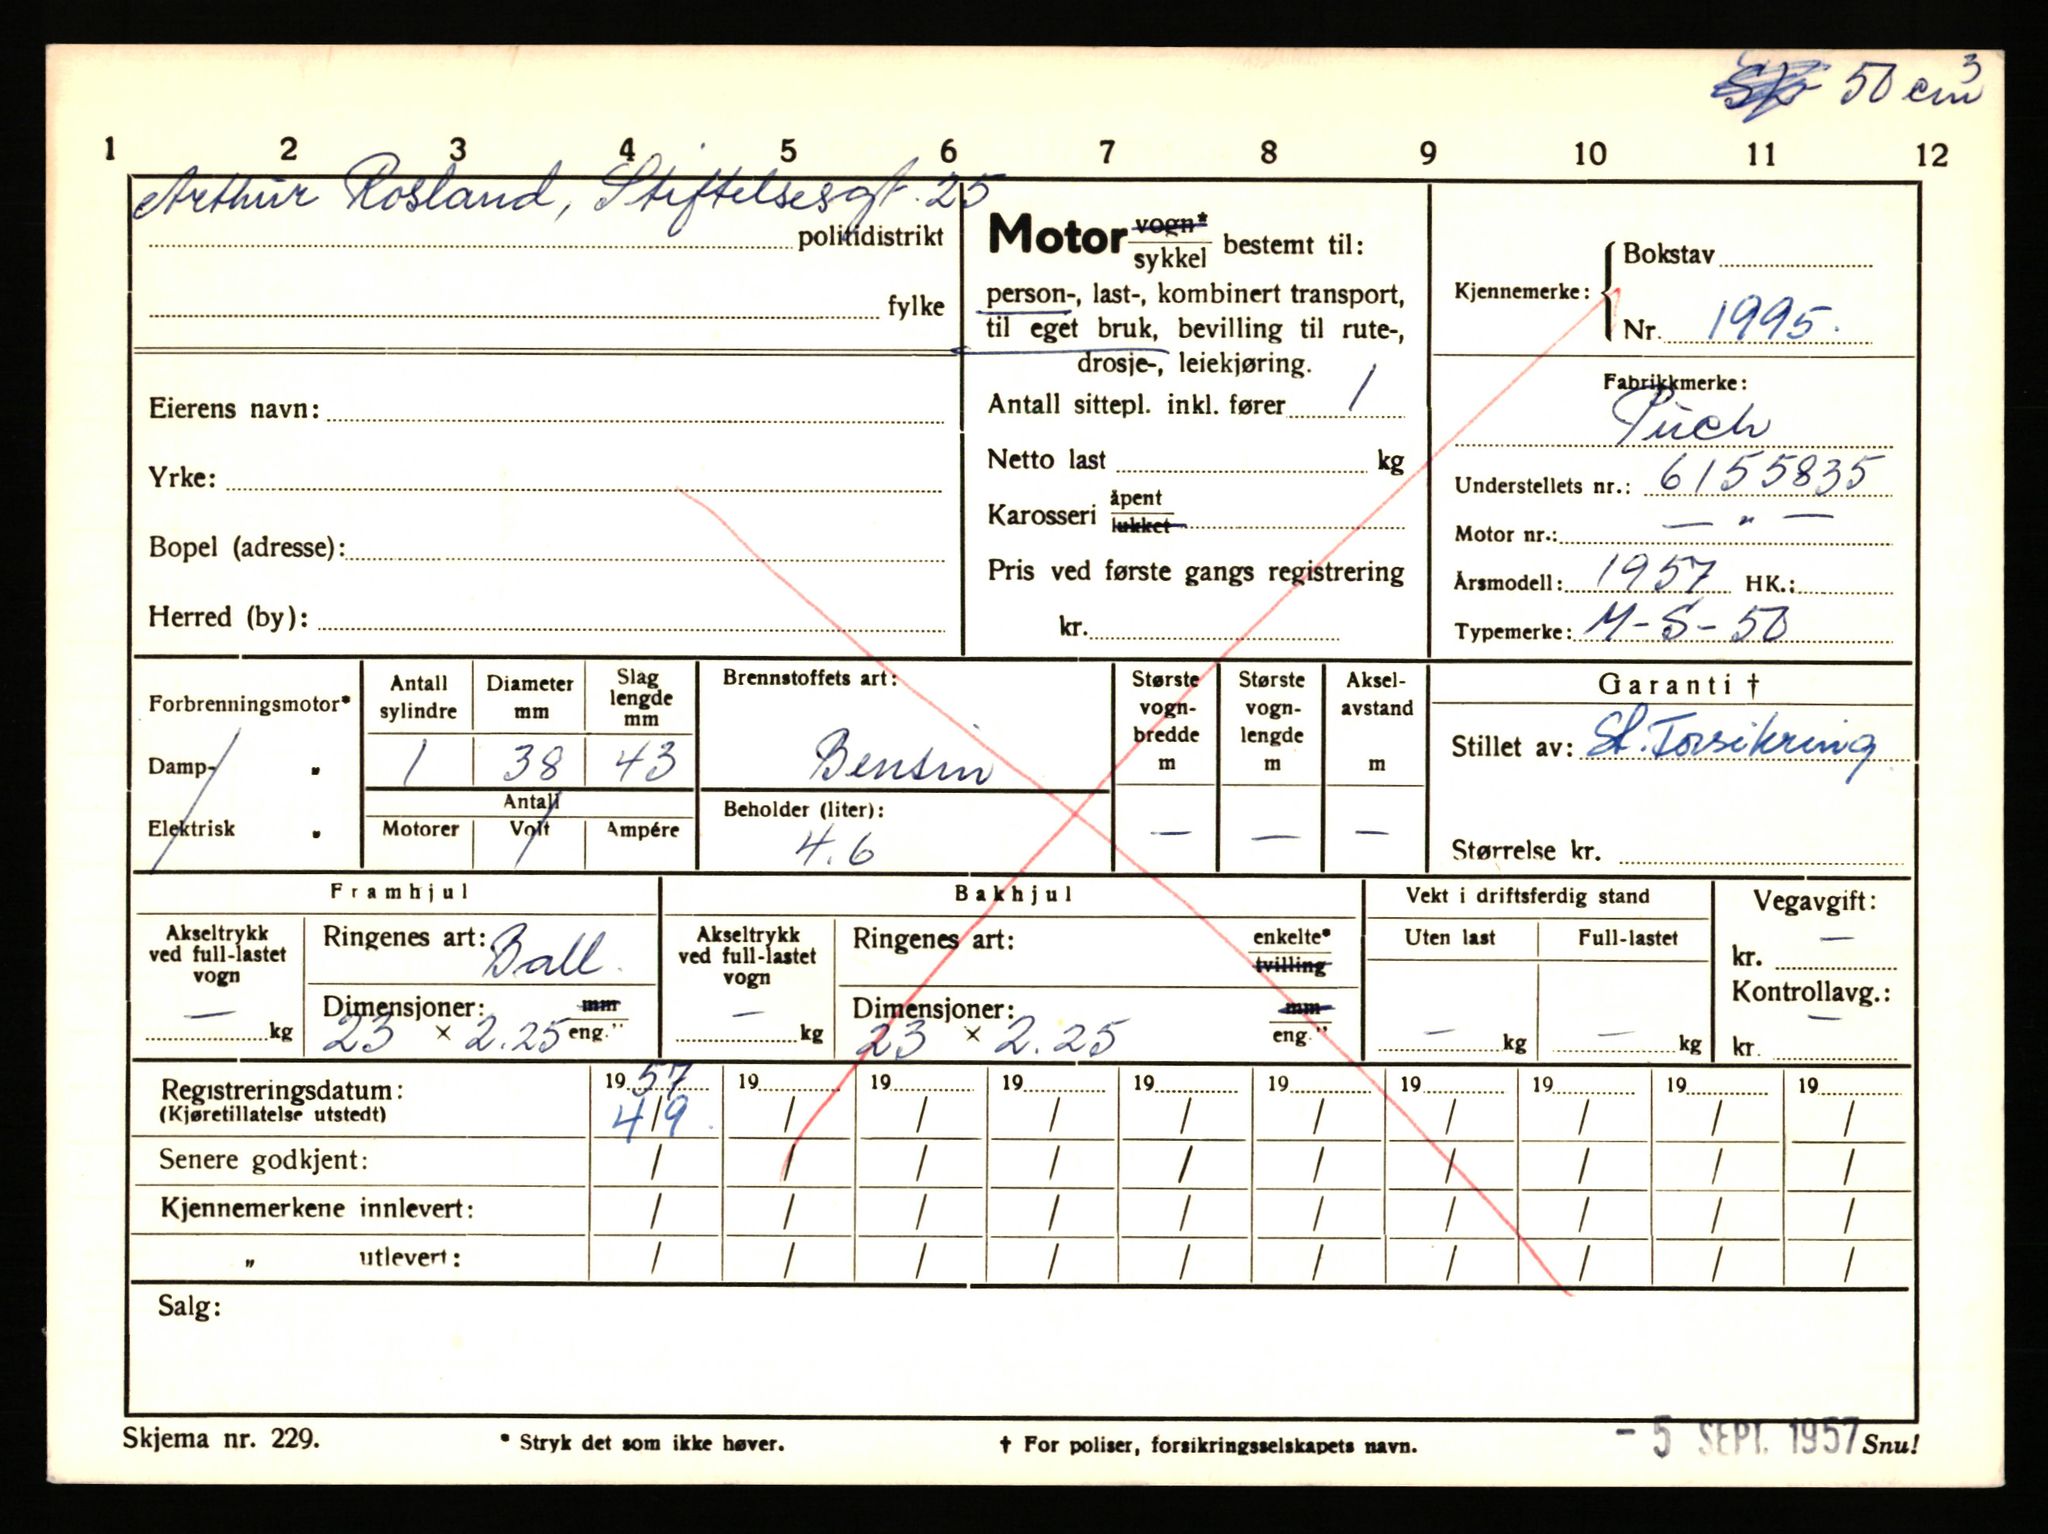 50 cm³
1 2 3 4 5 6 7 8 9 10 11 12
Arthur Rosland, Stiftelsesgt. 25
politidistrikt
fylke
Eierens navn:
Yrke:
Bopel (adresse):
Herred (by):
Motor vogn* / sykkel bestemt til:
person-, last-, kombinert transport,
til eget bruk, bevilling til rute-,
drosje-, leiekjøring.
Antall sittepl. inkl. fører 1
Netto last kg
Karosseri åpent / lukket
Pris ved første gangs registrering
kr.
Kjennemerke: { Bokstav
Nr. 1995.
Fabrikkmerke:
Puch
Understellets nr.: 6155835
Motor nr.: — " —
Årsmodell: 1957 HK.:
Typemerke: M-S-50
Forbrenningsmotor*
Damp- „
Elektrisk „
Antall sylindre
Diameter mm
Slag lengde mm
1 38 43
Antall
Motorer Volt Ampére
Brennstoffets art:
Bensin
Beholder (liter):
4.6
Største vogn-bredde m
—
Største vogn-lengde m
—
Aksel-avstand m
—
Garanti †
Stillet av: St. Forsikring
Størrelse kr.
Framhjul
Akseltrykk ved full-lastet vogn
— kg
Ringenes art: Ball.
Dimensjoner: mm / eng."
23 × 2.25
Bakhjul
Akseltrykk ved full-lastet vogn
— kg
Ringenes art: enkelte* / tvilling
Dimensjoner: mm / eng."
23 × 2.25
Vekt i driftsferdig stand
Uten last Full-lastet
— kg — kg
Vegavgift:
kr. —
Kontrollavg.:
kr. —
Registreringsdatum: 1957 19 19 19 19 19 19 19 19 19
(Kjøretillatelse utstedt) 4/9. / / / / / / / / /
Senere godkjent: / / / / / / / / / /
Kjennemerkene innlevert: / / / / / / / / / /
„ utlevert: / / / / / / / / / /
Salg:
Skjema nr. 229.
* Stryk det som ikke høver.
† For poliser, forsikringsselskapets navn.
- 5 SEPT. 1957
Snu!